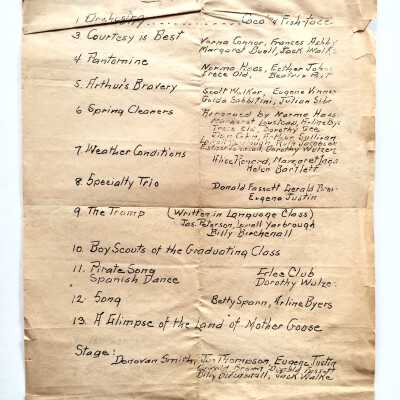 1 Orchestra Coco & Fish-face
3 Courtesy is Best Verna Connor, Frances Ashby
Margaret Buell, Jack Walke
4 Pantomine Norma Haas, Esther Johns
Trece Old, Beatrice
5. Arthur's Bravery Scott Walker, Eugene
Guido Sabbitini, Julian
6 Spring Cleaners Arranged by Norma Haas
Margaret Arline By
Trece Old, Dorothy
Arthur Sullivan
Ruth
Dorothy Wulzer
7. Weather Conditions Margaret
Helen Bartlett
8. Specialty Trio Donald Fassett Gerald
Eugene Justin
9. The Tramp (Written in Language Class)
Jas. Peterson, Lowell Yarbrough
Billy Birchenall
10. Boy Scouts of the Graduating Class
11. Pirate Song Glee Club
Spanish Dance Dorothy Wulze
12. Song Betty Spann, Arline Byers
13. A Glimpse of the Land of Mother Goose
Stage: Donovan Smith, Jim Thompson, Eugene Justin
Gerald Donald Fassett
Billy Jack Walke